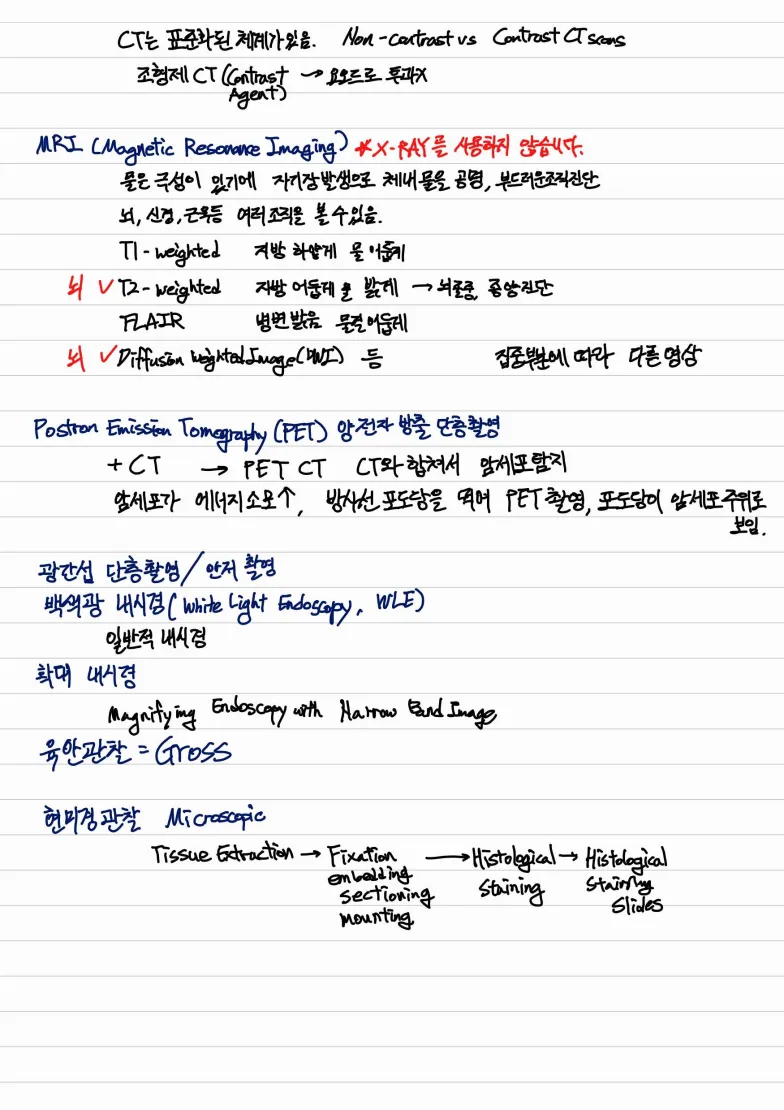 CT는 표준화된 체계가 있음. Non-contrast vs Contrast CT scans
조형제 CT (Contrast Agent) → 요오드로 투과X
MRI (Magnetic Resonance Imaging) *X-RAY를 사용하지 않습니다.
물은 극성이 있기에 자기장발생으로 체내 물을 공명, 부드러운조직진단
뇌, 신경, 근육등 여러조직을 볼 수 있음.
T1-weighted 지방 하얗게 물 어둡게
뇌 ✓ T2-weighted 지방 어둡게 물 밝게 → 뇌졸중, 종양진단
FLAIR 병변 밝음 물은 어둡게
뇌 ✓ Diffusion Weighted Image(DWI) 등 집중부분에 따라 다른 영상
Positron Emission Tomography (PET) 양전자 방출 단층촬영
+ CT → PET CT CT와 합쳐서 암세포탐지
암세포가 에너지소모↑, 방사선 포도당을 먹여 PET 촬영, 포도당이 암세포 주위로
보임.
광간섭 단층촬영 / 안저 촬영
백색광 내시경 (White Light Endoscopy, WLE)
일반적 내시경
확대 내시경
Magnifying Endoscopy with Narrow Band Image
육안관찰 = Gross
현미경관찰 Microscopic
Tissue Extraction → Fixation embedding sectioning mounting → Histological Staining → Histological Staining Slides